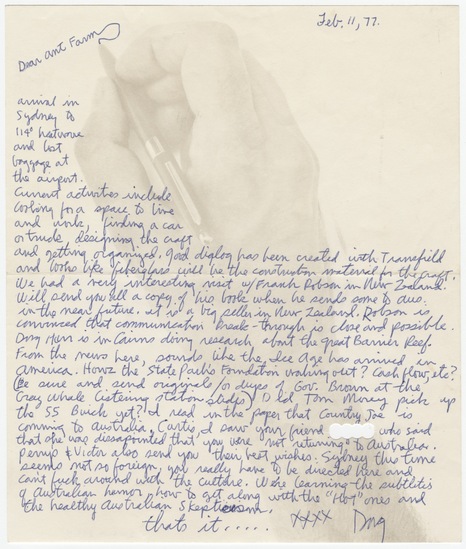 Feb. 11, 77.
Dear Ant Farm
arrival in
Sydney to
114° heatwave
and lost
baggage at
the airport.
Current activities include
looking for a space to live
and work, finding a car
or truck, designing the craft
and getting organized. Good dialog has been created with Transfield
and looks like fiberglass will be the construction material for the craft.
We had a very interesting visit w/ Frank Robson in New Zealand.
Will send you all a copy of his book when he sends some to aus.
in the near future. it is a big seller in New Zealand. Robson is
convinced that communication break-through is close and possible.
Doug Hurr is in Cairns doing research about the great Barrier Reef.
From the news here, sounds like the Ice Age has arrived in
america. Howz the State Parks Foundation working out? Cash flow, etc?
Be sure and send originals or dupes of Gov. Brown at the
Gray Whale listening station slides) Did Tom Morey pick up
the 55 Buick yet? I read in the paper that Country Joe is
comming to Australia. Curtis, I saw your friend who said
that she was dissapointed that you were not returning to Australia.
& Victor also send you their best wishes. Sydney this time
seems not so foreign. you really have to be directed here and
can't fuck around with the culture. We're learning the subtleties
of Australian humor, how to get along with the "Hot" ones and
the healthy Australian Skepticism.
thats it..... xxxx Doug